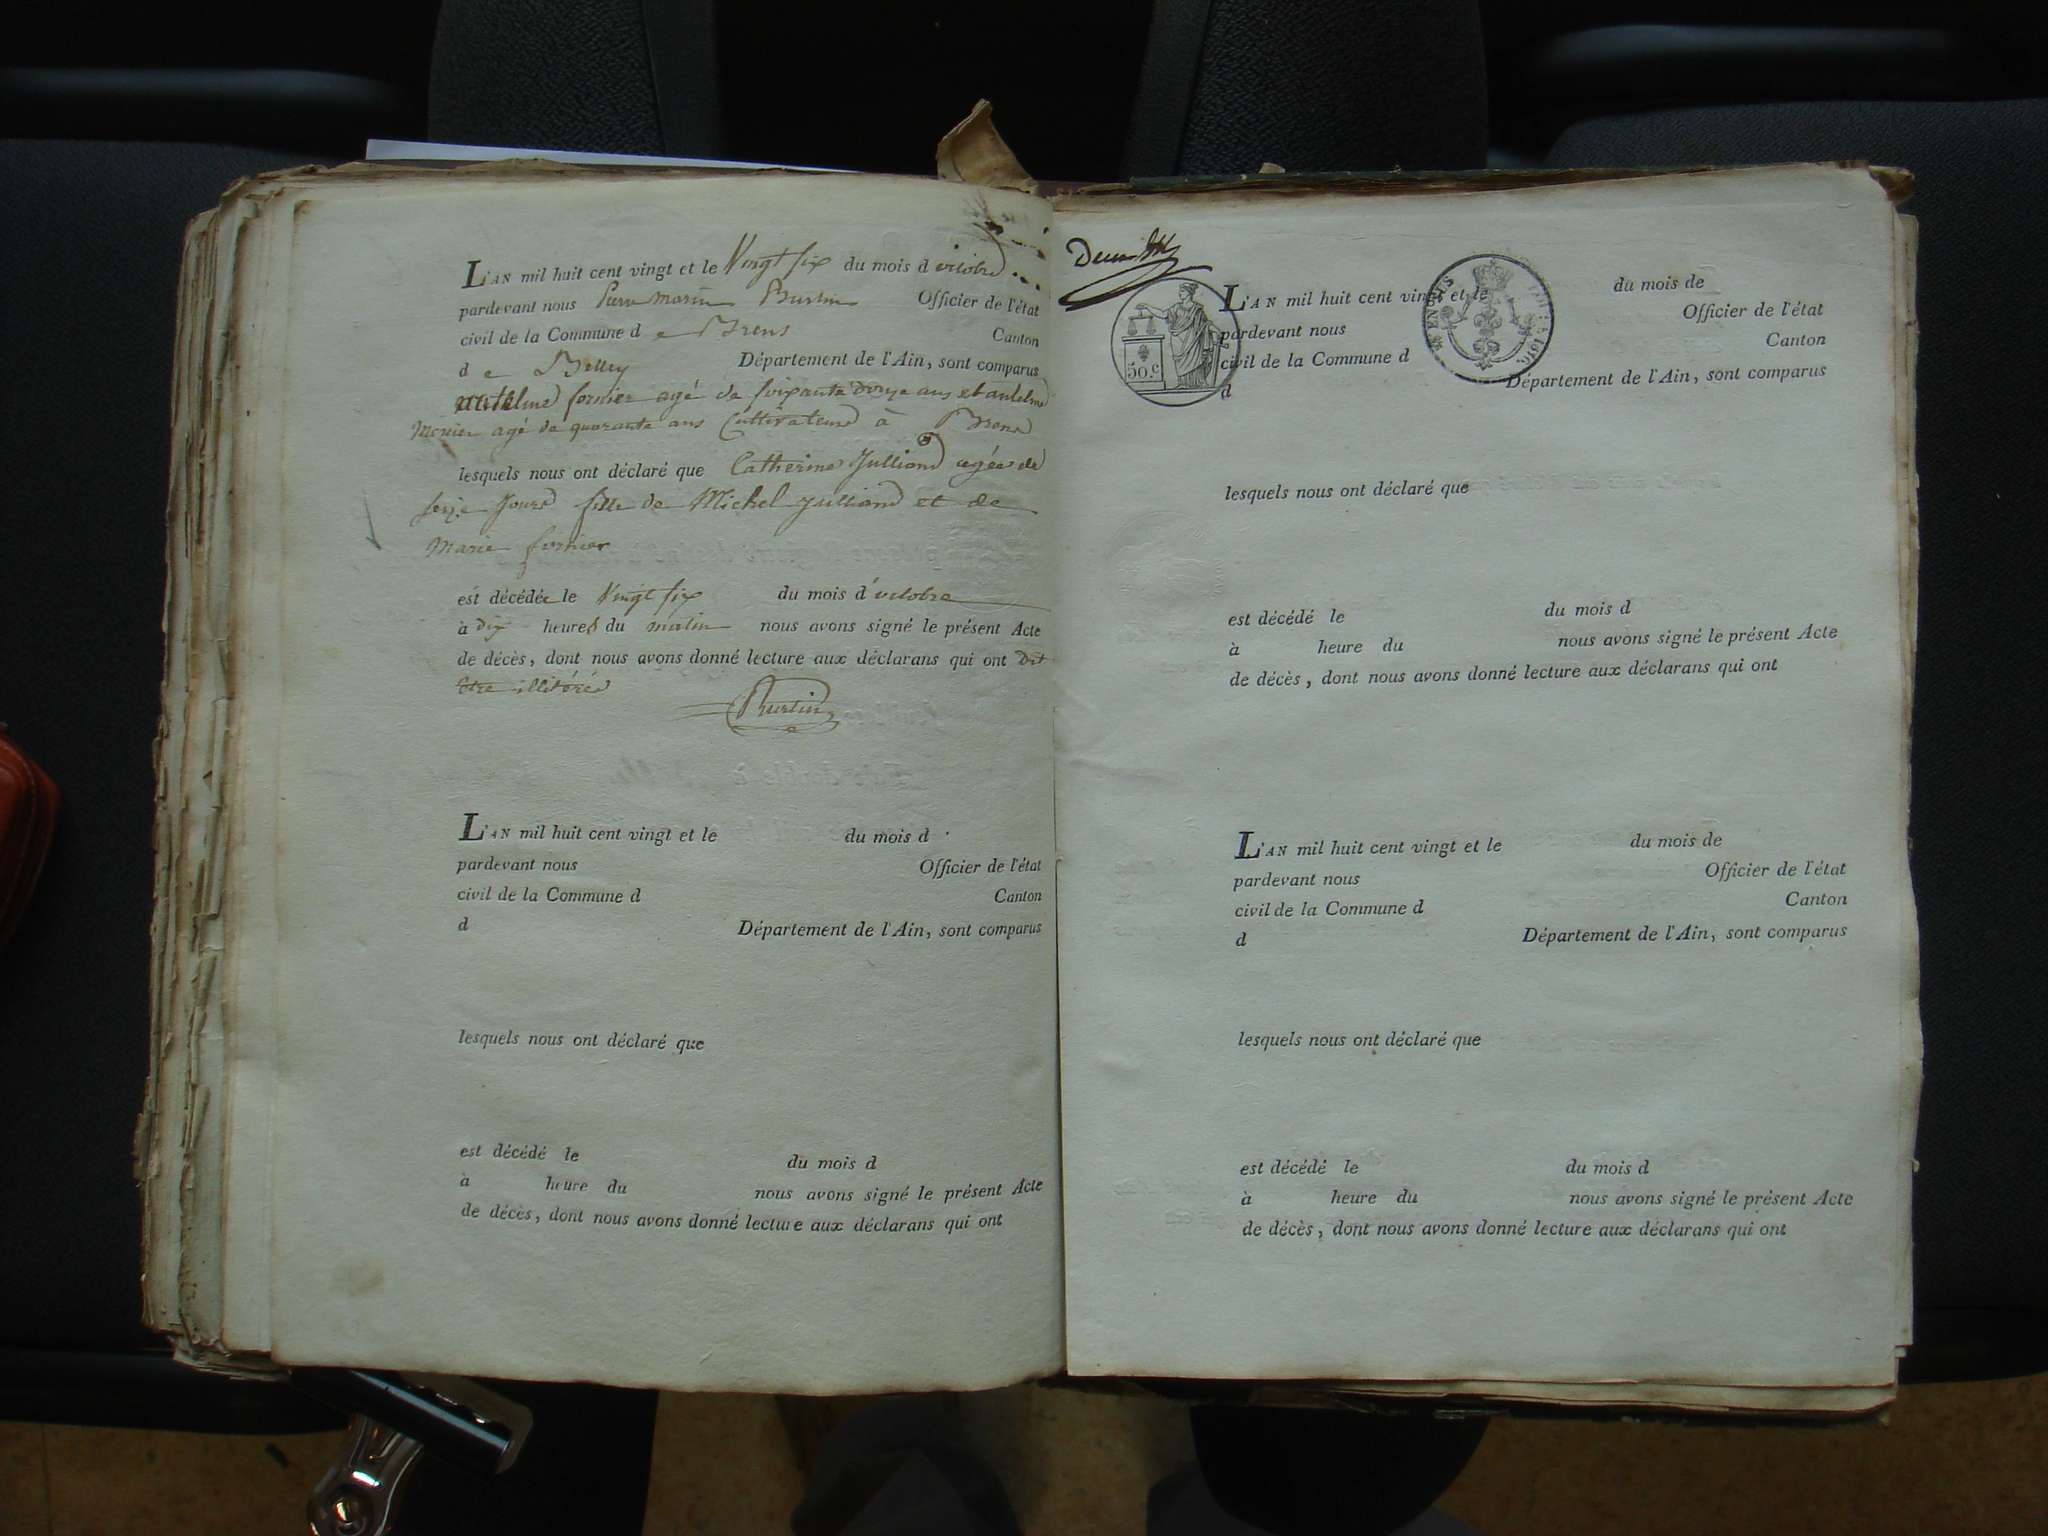 L'AN mil huit cent vingt et le Vingt six du mois d octobre
pardevant nous Pierre marin Burtin Officier de l'état
civil de la Commune d e Brens Canton
d e Belley Département de l'Ain, sont comparus
antelme fornier agé de soixante douze ans et antelme
Monier agé de quarante ans Cultivateurs à Brens
lesquels nous ont déclaré que Catherine Julliand agée de
seize Jours fille de Michel Julliand et de
Marie fornier
est décédée le Vingt six du mois d'octobre
à dix heures du matin nous avons signé le présent Acte
de décès, dont nous avons donné lecture aux déclarans qui ont dit
Etre illitérés
Burtin
L'AN mil huit cent vingt et le du mois d
pardevant nous Officier de l'état
civil de la Commune d Canton
d Département de l'Ain, sont comparus
lesquels nous ont déclaré que
est décédé le du mois d
à heure du nous avons signé le présent Acte
de décès, dont nous avons donné lecture aux déclarans qui ont
50.c
L'AN mil huit cent vingt et le du mois de
pardevant nous Officier de l'état
civil de la Commune d Canton
d Département de l'Ain, sont comparus
lesquels nous ont déclaré que
est décédé le du mois d
à heure du nous avons signé le présent Acte
de décès, dont nous avons donné lecture aux déclarans qui ont
L'AN mil huit cent vingt et le du mois de
pardevant nous Officier de l'état
civil de la Commune d Canton
d Département de l'Ain, sont comparus
lesquels nous ont déclaré que
est décédé le du mois d
à heure du nous avons signé le présent Acte
de décès, dont nous avons donné lecture aux déclarans qui ont